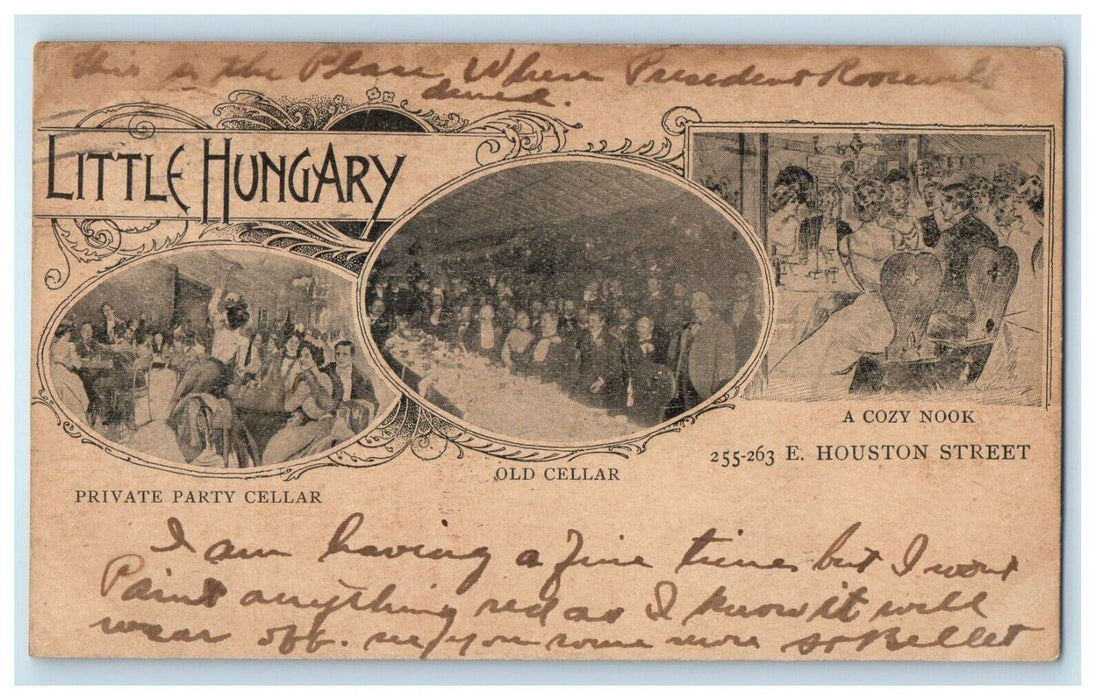 this is the Place Where President Roosevelt
dined.
LITTLE HUNGARY
A COZY NOOK
255-263 E. HOUSTON STREET
OLD CELLAR
PRIVATE PARTY CELLAR
I am having a fine time but I wont
Paint anything red as I know it will
wear off. see you some more so